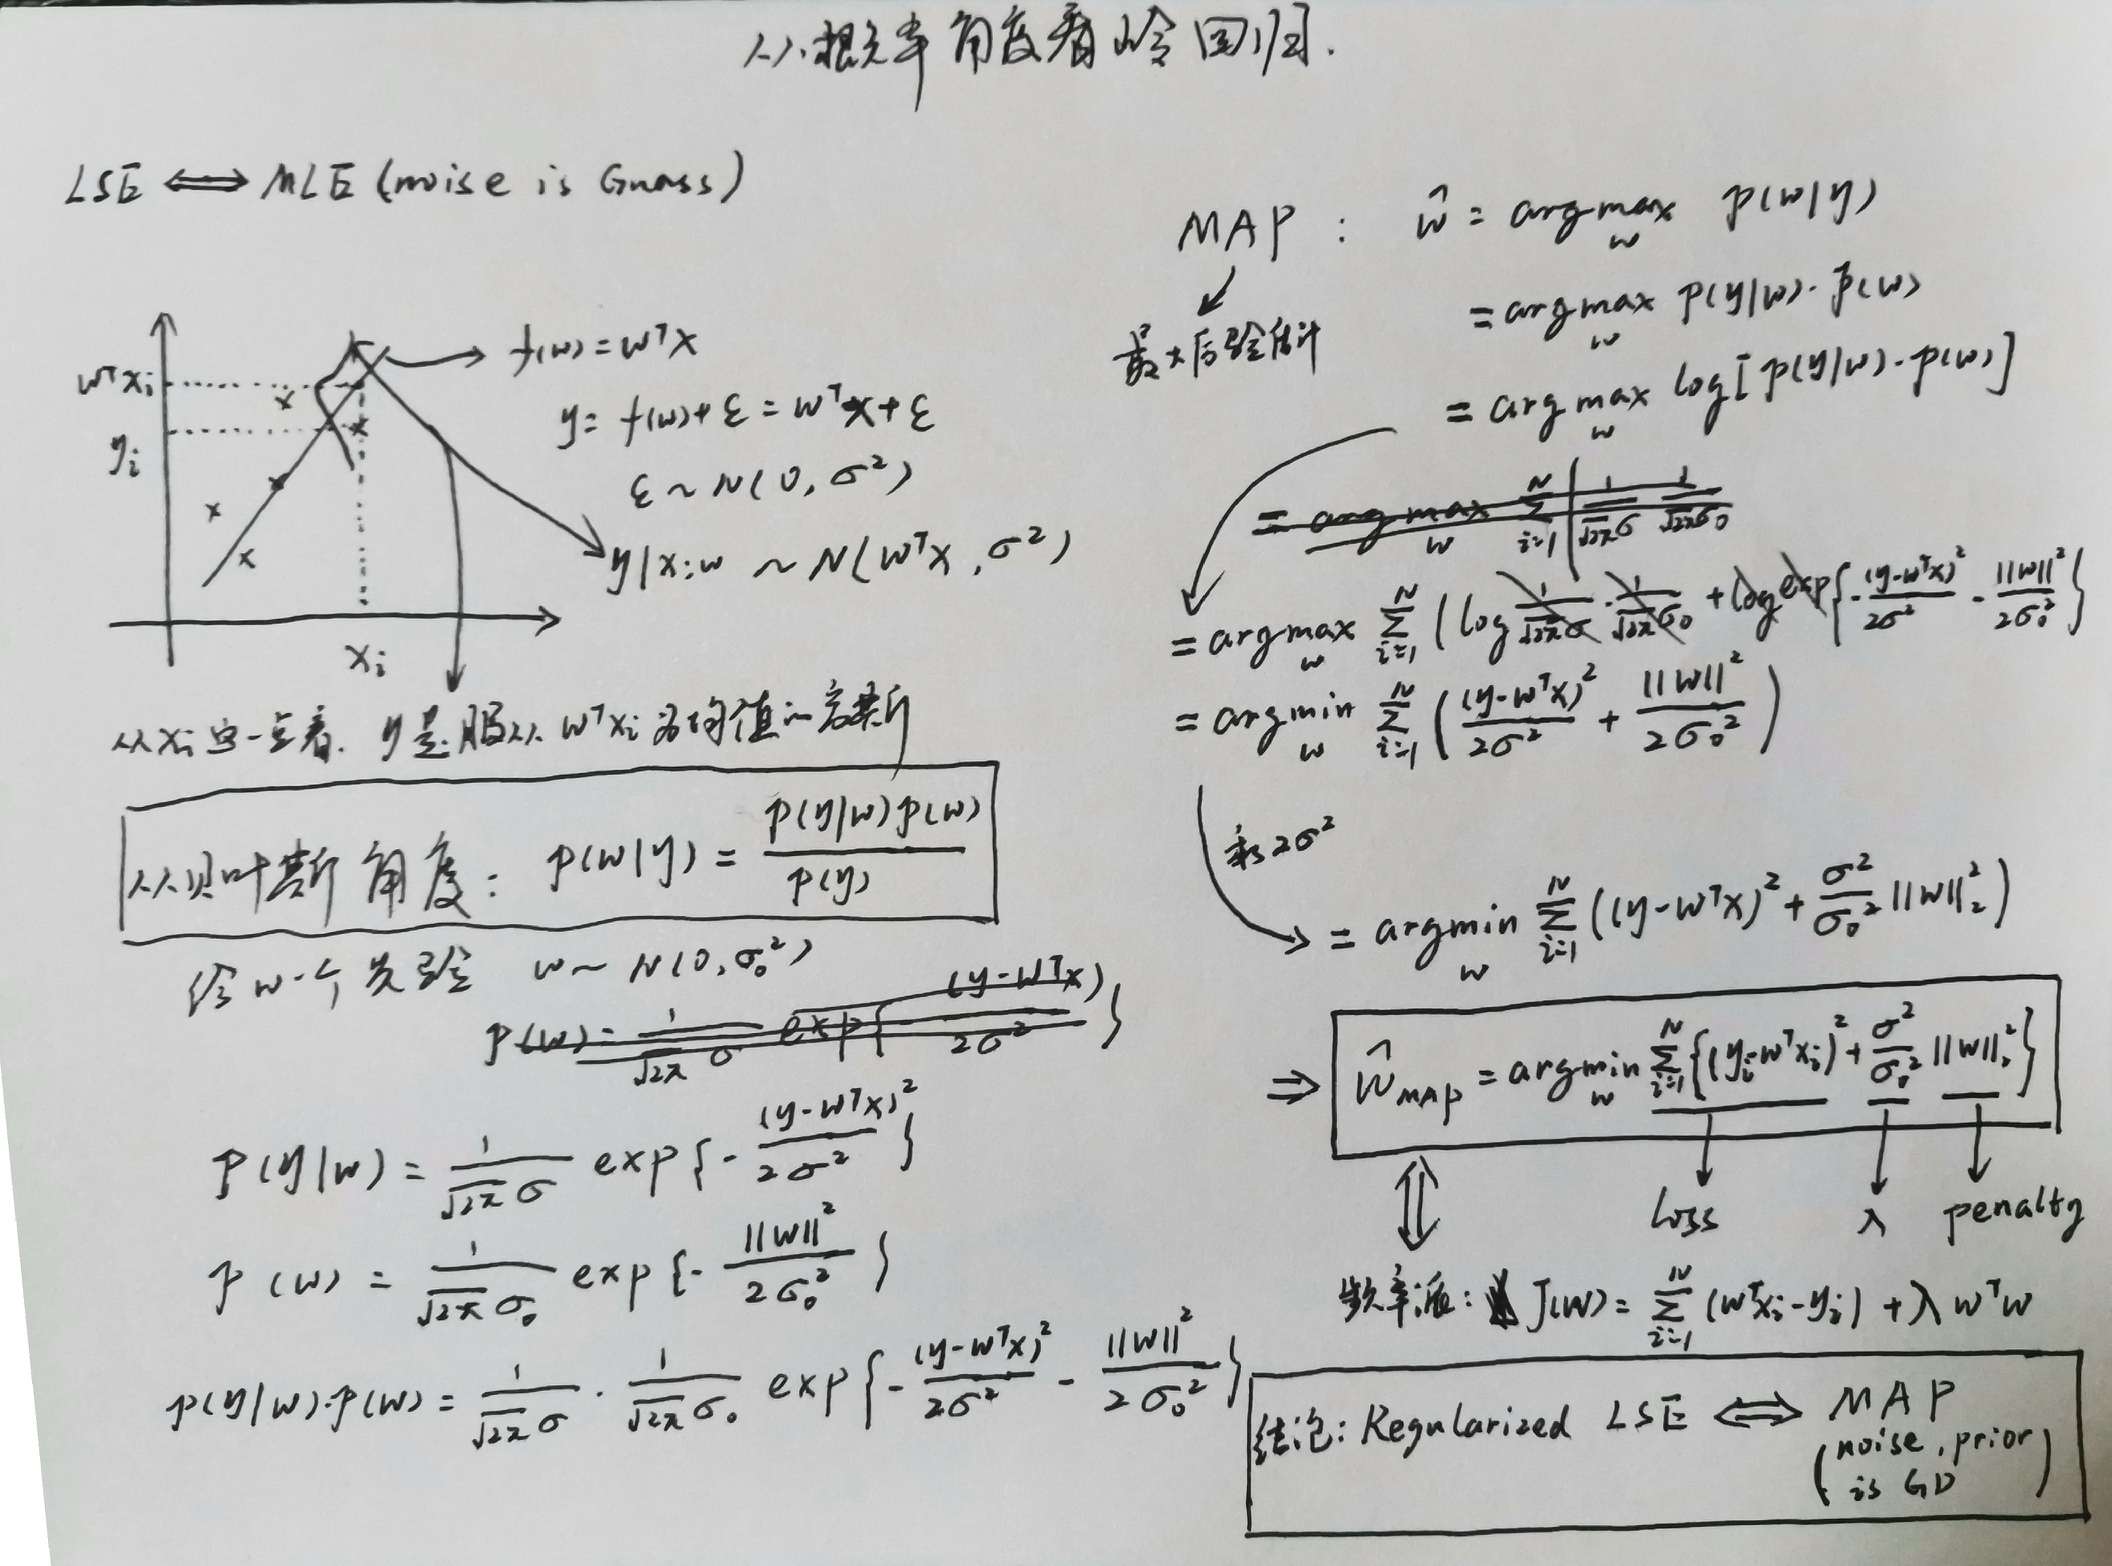 从概率角度看岭回归.
LSE ⟺ MLE (noise is Guass)
wᵀxᵢ
yᵢ
xᵢ
f(w) = wᵀx
y = f(w) + ε = wᵀx + ε
ε ~ N(0, σ²)
y|x;w ~ N(wᵀx, σ²)
从xᵢ这一点看, y是服从 wᵀxᵢ 为均值的高斯
从贝叶斯角度: p(w|y) = p(y|w)p(w) / p(y)
给w一个先验 w ~ N(0, σ₀²)
p(w) = 1/(√2π σ) exp{ (y-wᵀx) / 2σ² }
p(y|w) = 1/(√2π σ) exp{- (y-wᵀx)² / 2σ² }
p(w) = 1/(√2π σ₀) exp{- ||w||² / 2σ₀² }
p(y|w)·p(w) = 1/(√2π σ) · 1/(√2π σ₀) exp{- (y-wᵀx)² / 2σ² - ||w||² / 2σ₀² }
MAP : ŵ = argmax_w p(w|y)
最大后验估计
= argmax_w p(y|w)·p(w)
= argmax_w log[p(y|w)·p(w)]
= argmax_w Σ_{i=1}^{N} 1/(√2π σ) 1/(√2π σ₀)
= argmax_w Σ_{i=1}^{N} (log 1/(√2π σ) · 1/(√2π σ₀) + log exp{- (y-wᵀx)² / 2σ² - ||w||² / 2σ₀² }
= argmin_w Σ_{i=1}^{N} ( (y-wᵀx)² / 2σ² + ||w||² / 2σ₀² )
乘2σ²
= argmin_w Σ_{i=1}^{N} ((y-wᵀx)² + σ²/σ₀² ||w||₂²)
⇒ ŵ_MAP = argmin_w Σ_{i=1}^{N} {(yᵢ-wᵀxᵢ)² + σ²/σ₀² ||w||₂²}
Loss λ penalty
频率派: J(w) = Σ_{i=1}^{N} (wᵀxᵢ-yᵢ) + λ wᵀw
结论: Regularized LSE ⟺ MAP
(noise, prior
is GD)